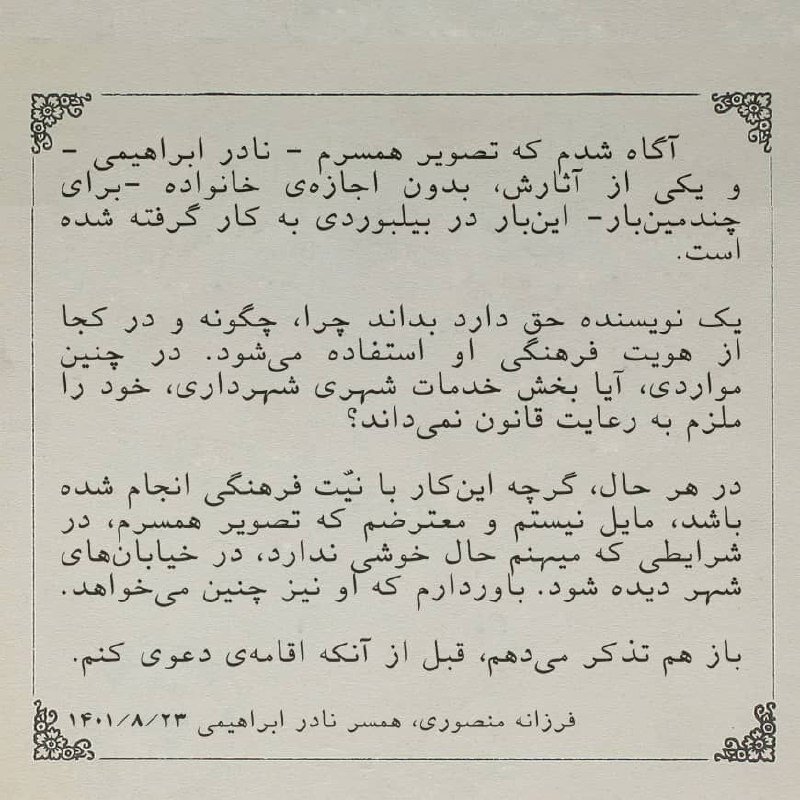 آگاه شدم که تصویر همسرم - نادر ابراهیمی -
و یکی از آثارش، بدون اجازه‌ی خانواده -برای
چندمین‌بار- این‌بار در بیلبوردی به کار گرفته شده
است.
یک نویسنده حق دارد بداند چرا، چگونه و در کجا
از هویت فرهنگی او استفاده می‌شود. در چنین
مواردی، آیا بخش خدمات شهری شهرداری، خود را
ملزم به رعایت قانون نمی‌داند؟
در هر حال، گرچه این‌کار با نیّت فرهنگی انجام شده
باشد، مایل نیستم و معترضم که تصویر همسرم، در
شرایطی که میهنم حال خوشی ندارد، در خیابان‌های
شهر دیده شود. باوردارم که او نیز چنین می‌خواهد.
باز هم تذکر می‌دهم، قبل از آنکه اقامه‌ی دعوی کنم.
فرزانه منصوری، همسر نادر ابراهیمی ۱۴۰۱/۸/۲۳